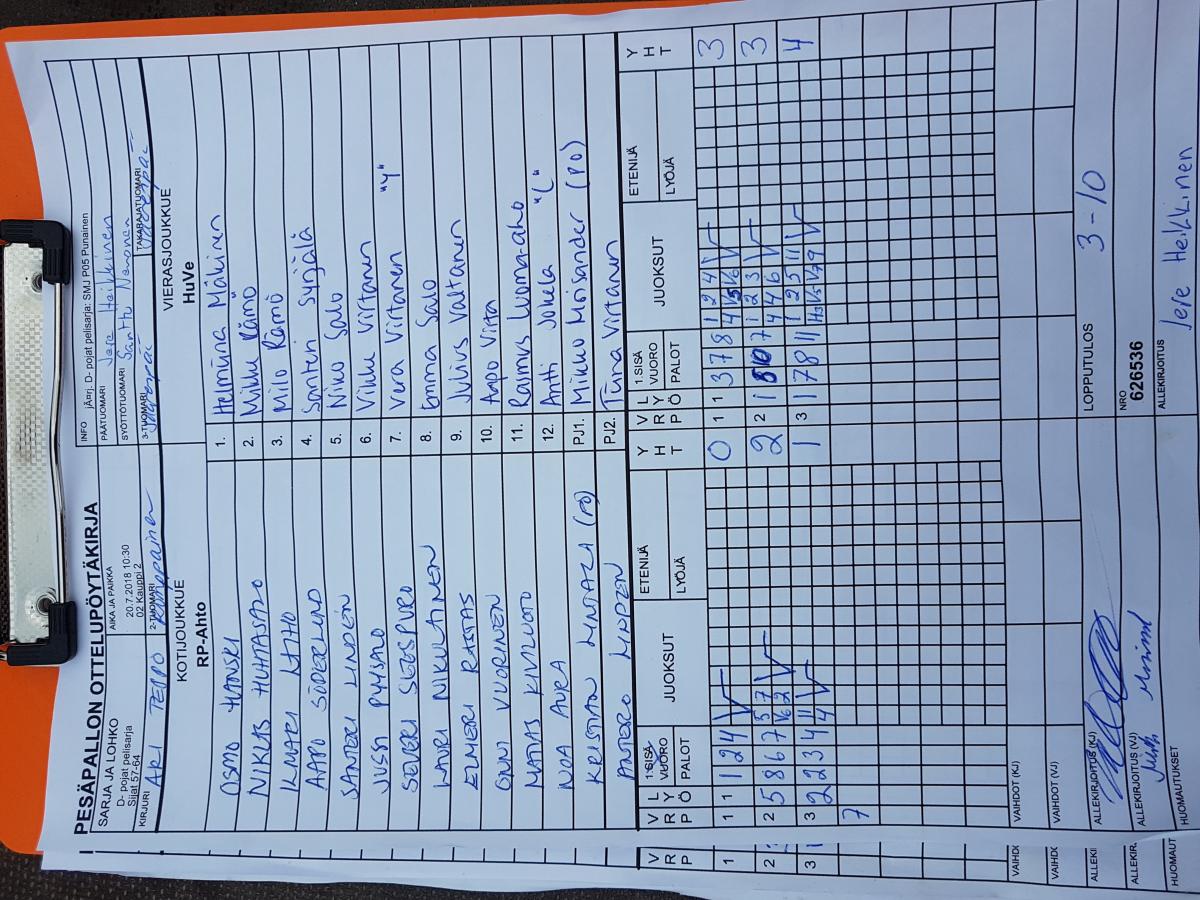 PESÄPALLON OTTELUPÖYTÄKIRJA
SARJA JA LOHKO
D- pojat pelisarja
Sijat 57-64
AIKA JA PAIKKA
20.7.2018 10:30
02 Kauppi 2
INFO jÄrj. D- pojat pelisarja: SMJ P05 Punainen
PÄÄTUOMARI Jere Heikkinen
SYÖTTÖTUOMARI Santtu
KIRJURI ARI TEPPO
2-TUOMARI
3-TUOMARI
TAKARAJATUOMARI
KOTIJOUKKUE
RP-Ahto
VIERASJOUKKUE
HuVe
OSMO 1. Helmiina Mäkinen
NIKLAS HUHTASALO 2. Mikku Rämö
ILMARI LAHO 3. Milo Rämö
AAPO SÖDERLUND 4. Santeri Syrjälä
SANTERI LINDÉN 5. Niko Salo
JUSSI PYYSALO 6. Vikku Virtanen
SEVERI 7. Vera Virtanen "Y"
LAURI NIKULAINEN 8. Emma Salo
ELMERI RASTAS 9. Julius Valtanen
ONNI VUORINEN 10. Aapo Virta
MATIAS KIVILUOTO 11. Rasmus Luoma-aho
NOA AURA 12. Antti Jokela "L"
KRISTIAN (PO) PJ1. Mikko Moisander (PO)
ANTERO LINDEN PJ2. Tiina Virtanen
V R P
L Y Ö
1.SISÄ VUORO
PALOT
JUOKSUT
ETENIJÄ
LYÖJÄ
Y H T
V R P
L Y Ö
1.SISÄ VUORO
PALOT
JUOKSUT
ETENIJÄ
LYÖJÄ
Y H T
1 1 1 2 4 0 1 1 3 7 8 1 2 4 3
2 5 8 6 7 5 7 2 2 1 7 1 2 3 3
3 2 2 3 4 11 1 3 1 7 8 11 1 2 5 11 4
7
VAIHDOT (KJ)
VAIHDOT (VJ)
LOPPUTULOS 3-10
ALLEKIRJOITUS (KJ)
ALLEKIRJOITUS (VJ)
NRO
626536
HUOMAUTUKSET
ALLEKIRJOITUS
Jere Heikkinen
V R P
1
2
3
VAIHDO
VAIHDO
ALLEKI
ALLEKIR.
HUOMAUT